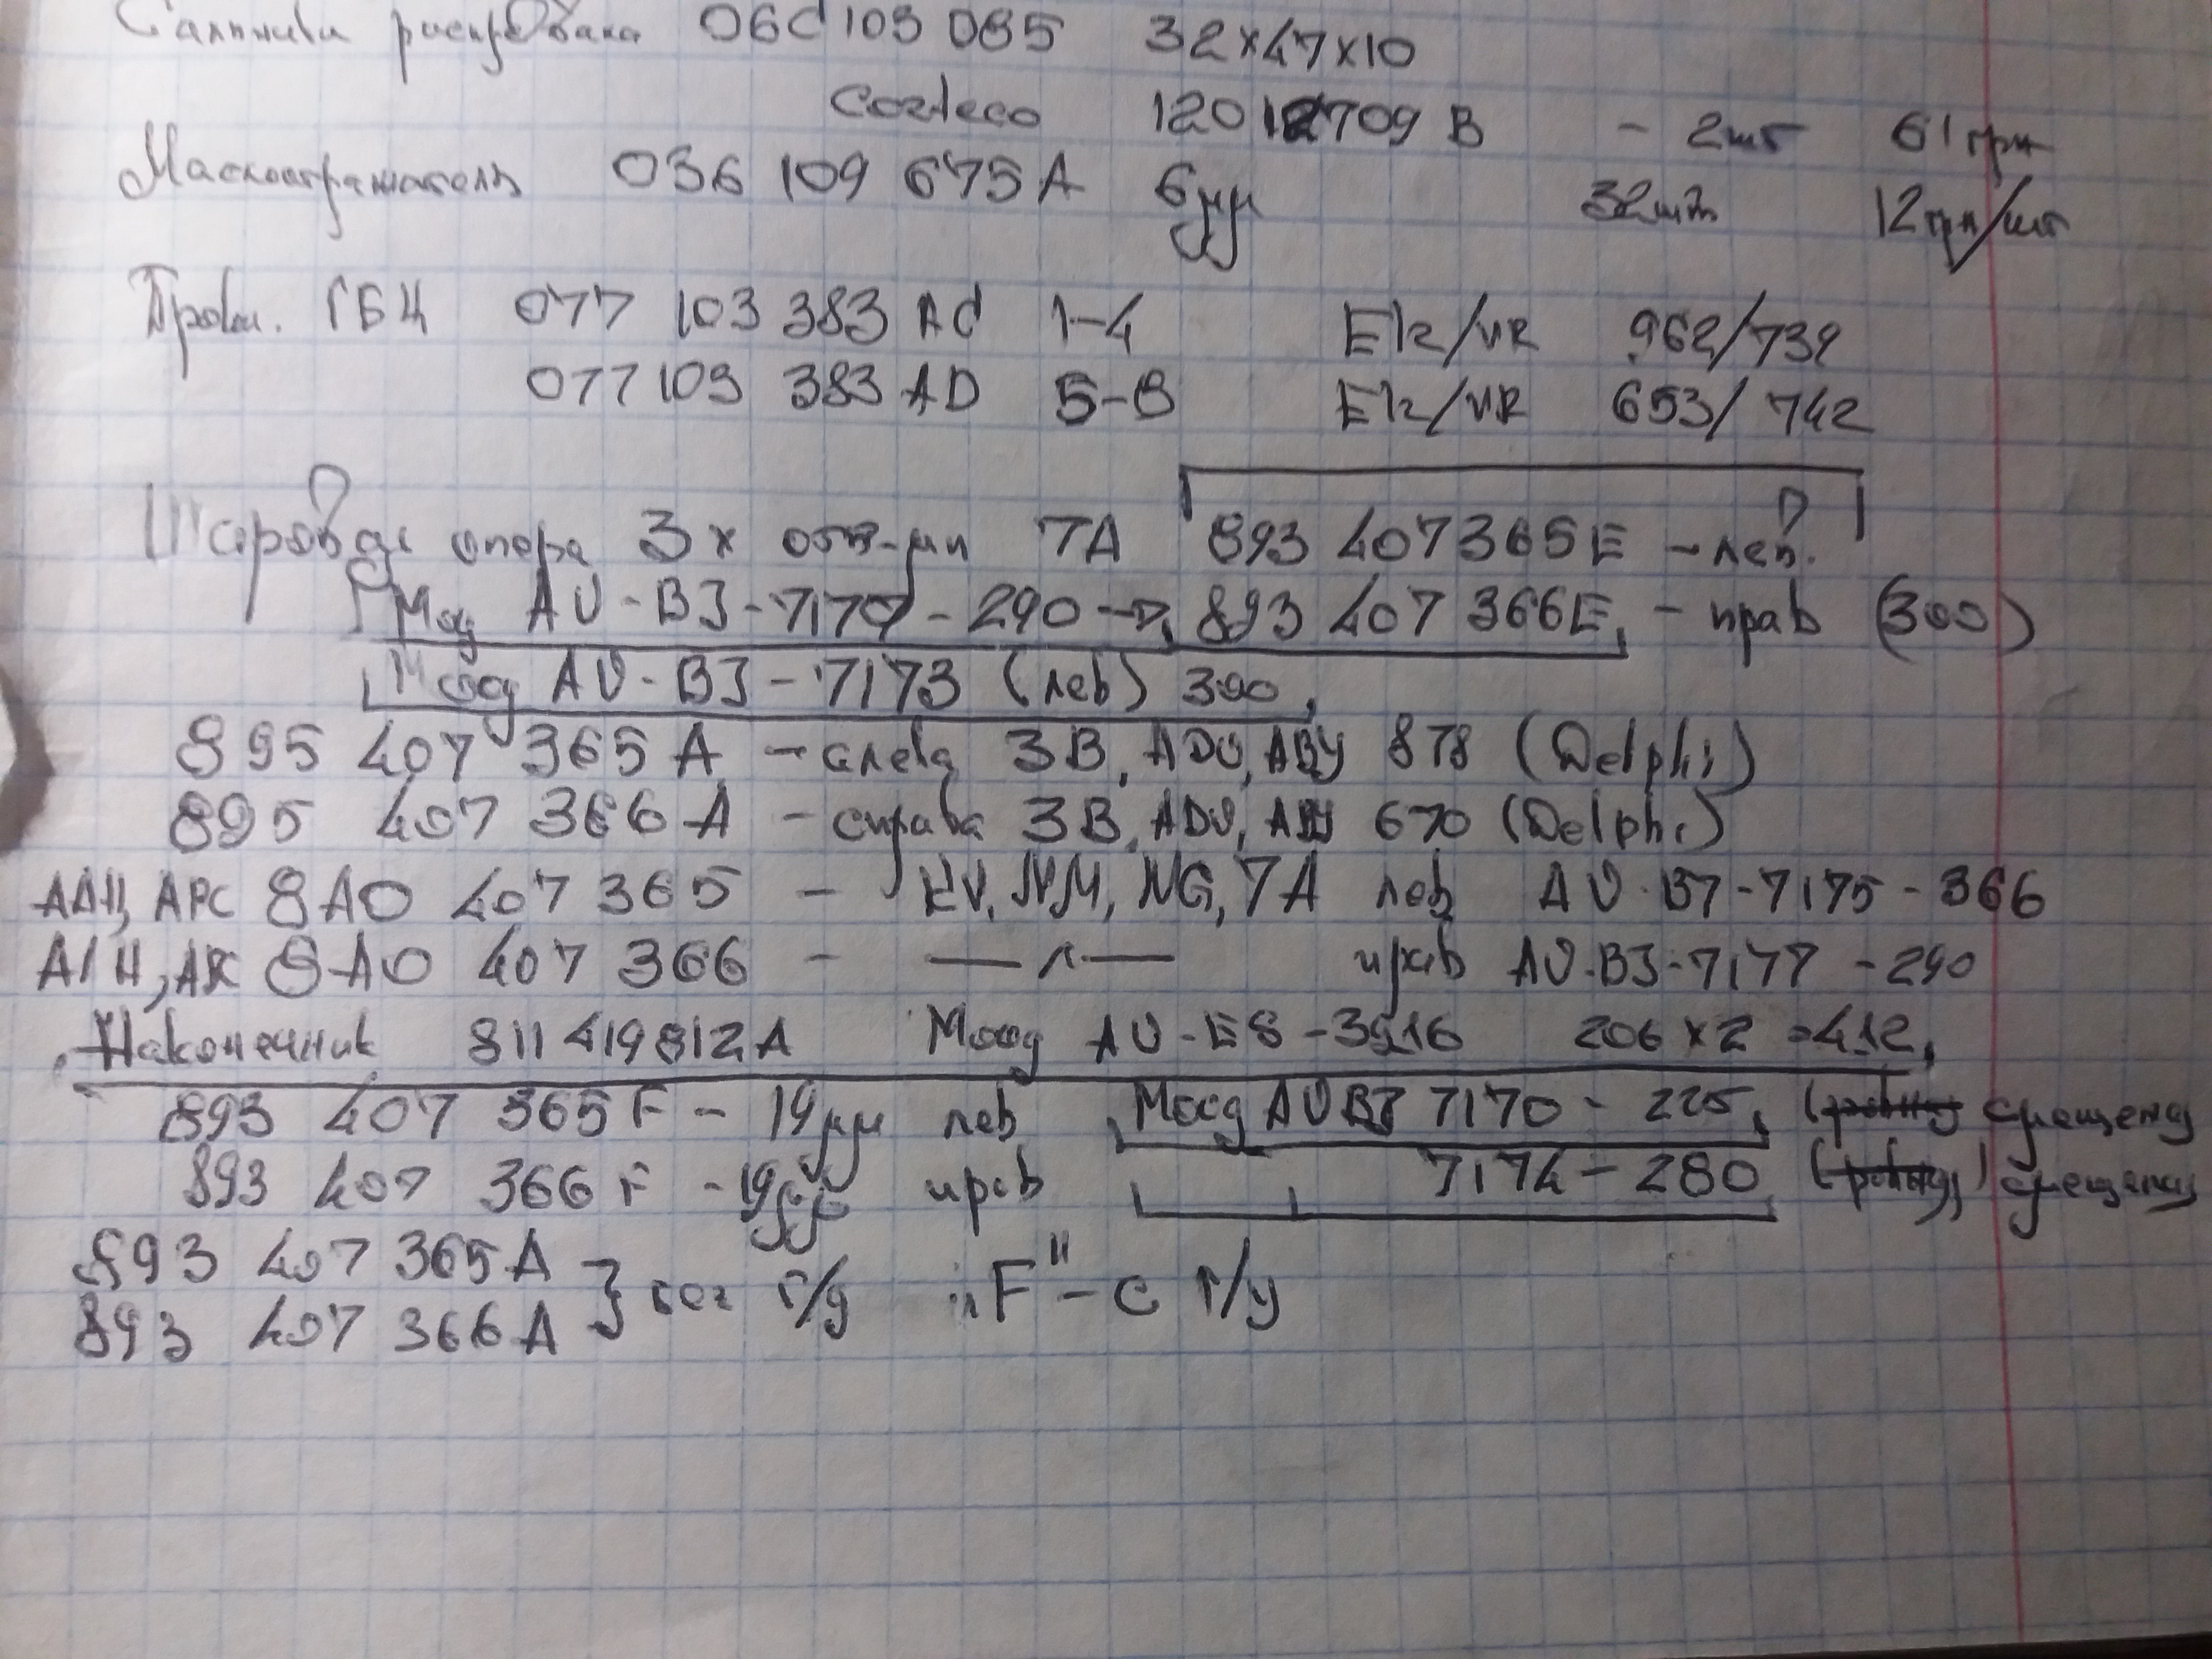 Сальники распредвала 06C 103 085 32x47x10
Corteco 12012709 B - 2шт 61 грн
Маслоотражатель 036 109 675 A 6мм 32шт 12грн/шт
Прокл. ГБЦ 077 103 383 AC 1-4 Elr/VR 962/739
077 103 383 AD 5-8 Elr/VR 653/742
Шаровая опора 3x отв-ми 7A 893 407 365 E - лев.
Moog AU-BJ-7170 - 290 → 893 407 366E - прав (300)
Moog AU-BJ-7173 (лев) 390
895 407 365 A - слева 3B, ADU, ABY 878 (Delphi)
895 407 366 A - справа 3B, ADU, ABY 670 (Delphi)
8A0 407 365 - KV, NM, NG, 7A лев AU-BJ-7175 - 366
8A0 407 366 - —"— прав AU-BJ-7177 - 290
Наконечник 811 419 812 A Moog AU-ES-3916 206 x 2 = 412
893 407 365 F - 19мм лев Moog AUBJ 7170 - 225 (ровну смещену
893 407 366 F - 19мм прав 7174 - 280 (ровну) смещену
893 407 365 A } без г/у „F" - с г/у
893 407 366 A